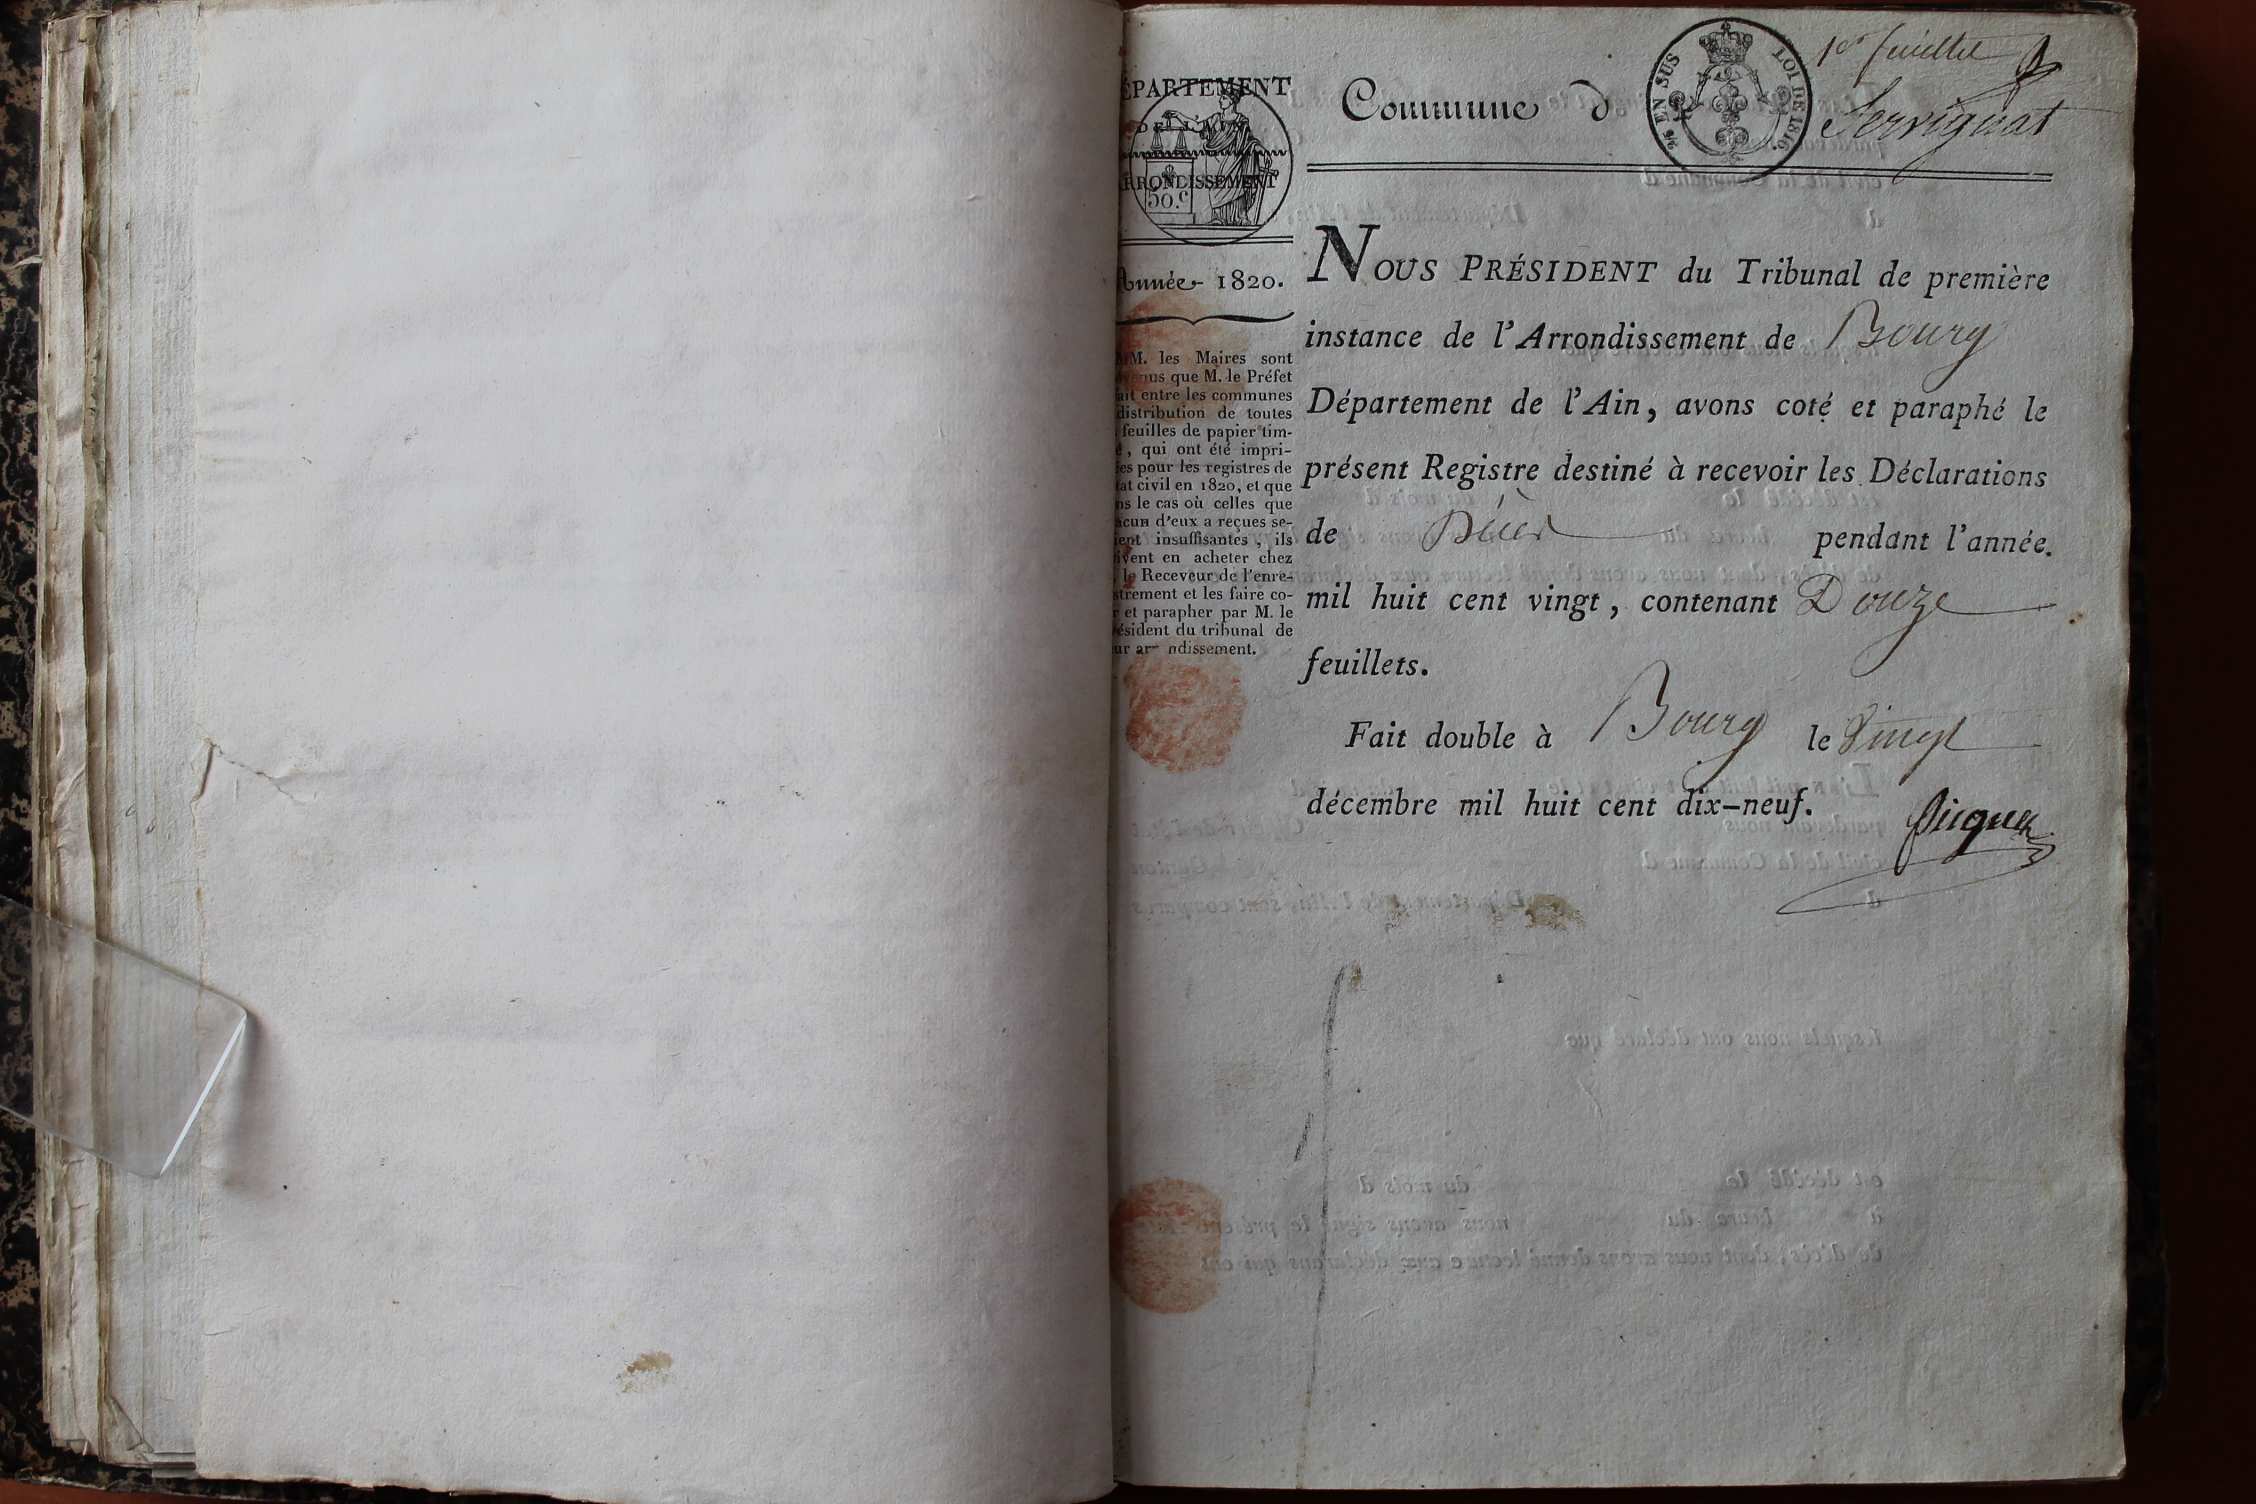 1er feuillet
ÉPARTEMENT
DE L'AIN
RRONDISSEMENT
50.c
Année 1820.
M. les Maires sont
venus que M. le Préfet
ait entre les communes
distribution de toutes
feuilles de papier tim-
é, qui ont été impri-
es pour les registres de
tat civil en 1820, et que
ns le cas où celles que
acun d'eux a reçues se-
ient insuffisantes, ils
ivent en acheter chez
le Receveur de l'enre-
strement et les faire co-
r et parapher par M. le
ésident du tribunal de
ur ar ndissement.
Commune d Servignat
EN SUS LOI DE 1816.
NOUS PRÉSIDENT du Tribunal de première
instance de l'Arrondissement de Bourg
Département de l'Ain, avons coté et paraphé le
présent Registre destiné à recevoir les Déclarations
de Décès pendant l'année.
mil huit cent vingt, contenant Douze
feuillets.
Fait double à Bourg le Vingt
décembre mil huit cent dix-neuf.